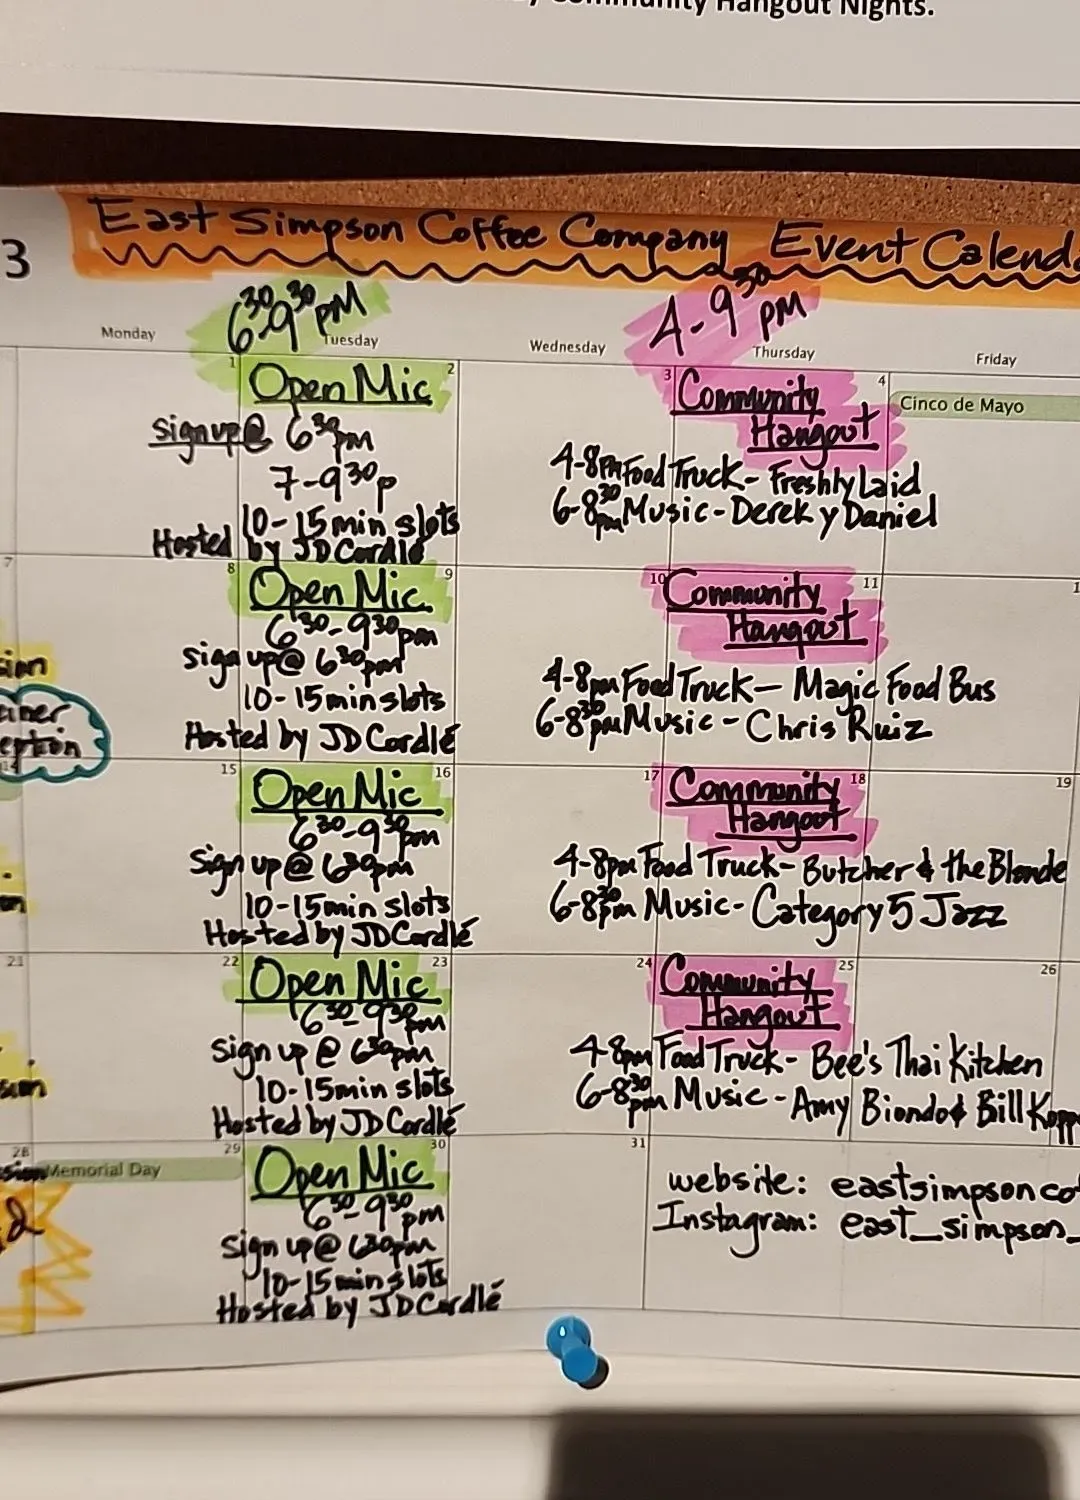 Community Hangout Nights.
3
East Simpson Coffee Company Event
6:30-9:30 PM
4-9:30 PM
Monday
Tuesday
Wednesday
Thursday
Friday
1
Open Mic
2
sign up @ 6:30pm
7-9:30p
10-15 min slots
Hosted by JD Cordlé
3
Community
Hangout
4
4-8PM Food Truck- Freshly Laid
6-8:30pm Music-Derek y Daniel
Cinco de Mayo
7
8
Open Mic
9
6:30-9:30pm
sign up @ 6:30pm
10-15min slots
Hosted by JD Cordlé
10
Community
Hangout
11
4-8pm Food Truck- Magic Food Bus
6-8:30pm Music- Chris Ruiz
14
15
Open Mic
16
6:30-9:30pm
Sign up @ 6:30pm
10-15min slots
Hosted by JD Cordlé
17
Community
Hangout
18
4-8pm Food Truck- Butcher & the Blonde
6-8:30pm Music- Category 5 Jazz
19
21
22
Open Mic
23
6:30-9:30pm
Sign up @ 6:30pm
10-15min slots
Hosted by JD Cordlé
24
Community
Hangout
25
4-8pm Food Truck- Bee's Thai Kitchen
6-8:30pm Music- Amy Biondo & Bill
26
28
Memorial Day
29
Open Mic
30
6:30-9:30pm
Sign up @ 6:30pm
10-15min slots
Hosted by JD Cordlé
31
website: eastsimpsonco
Instagram: east_simpson_